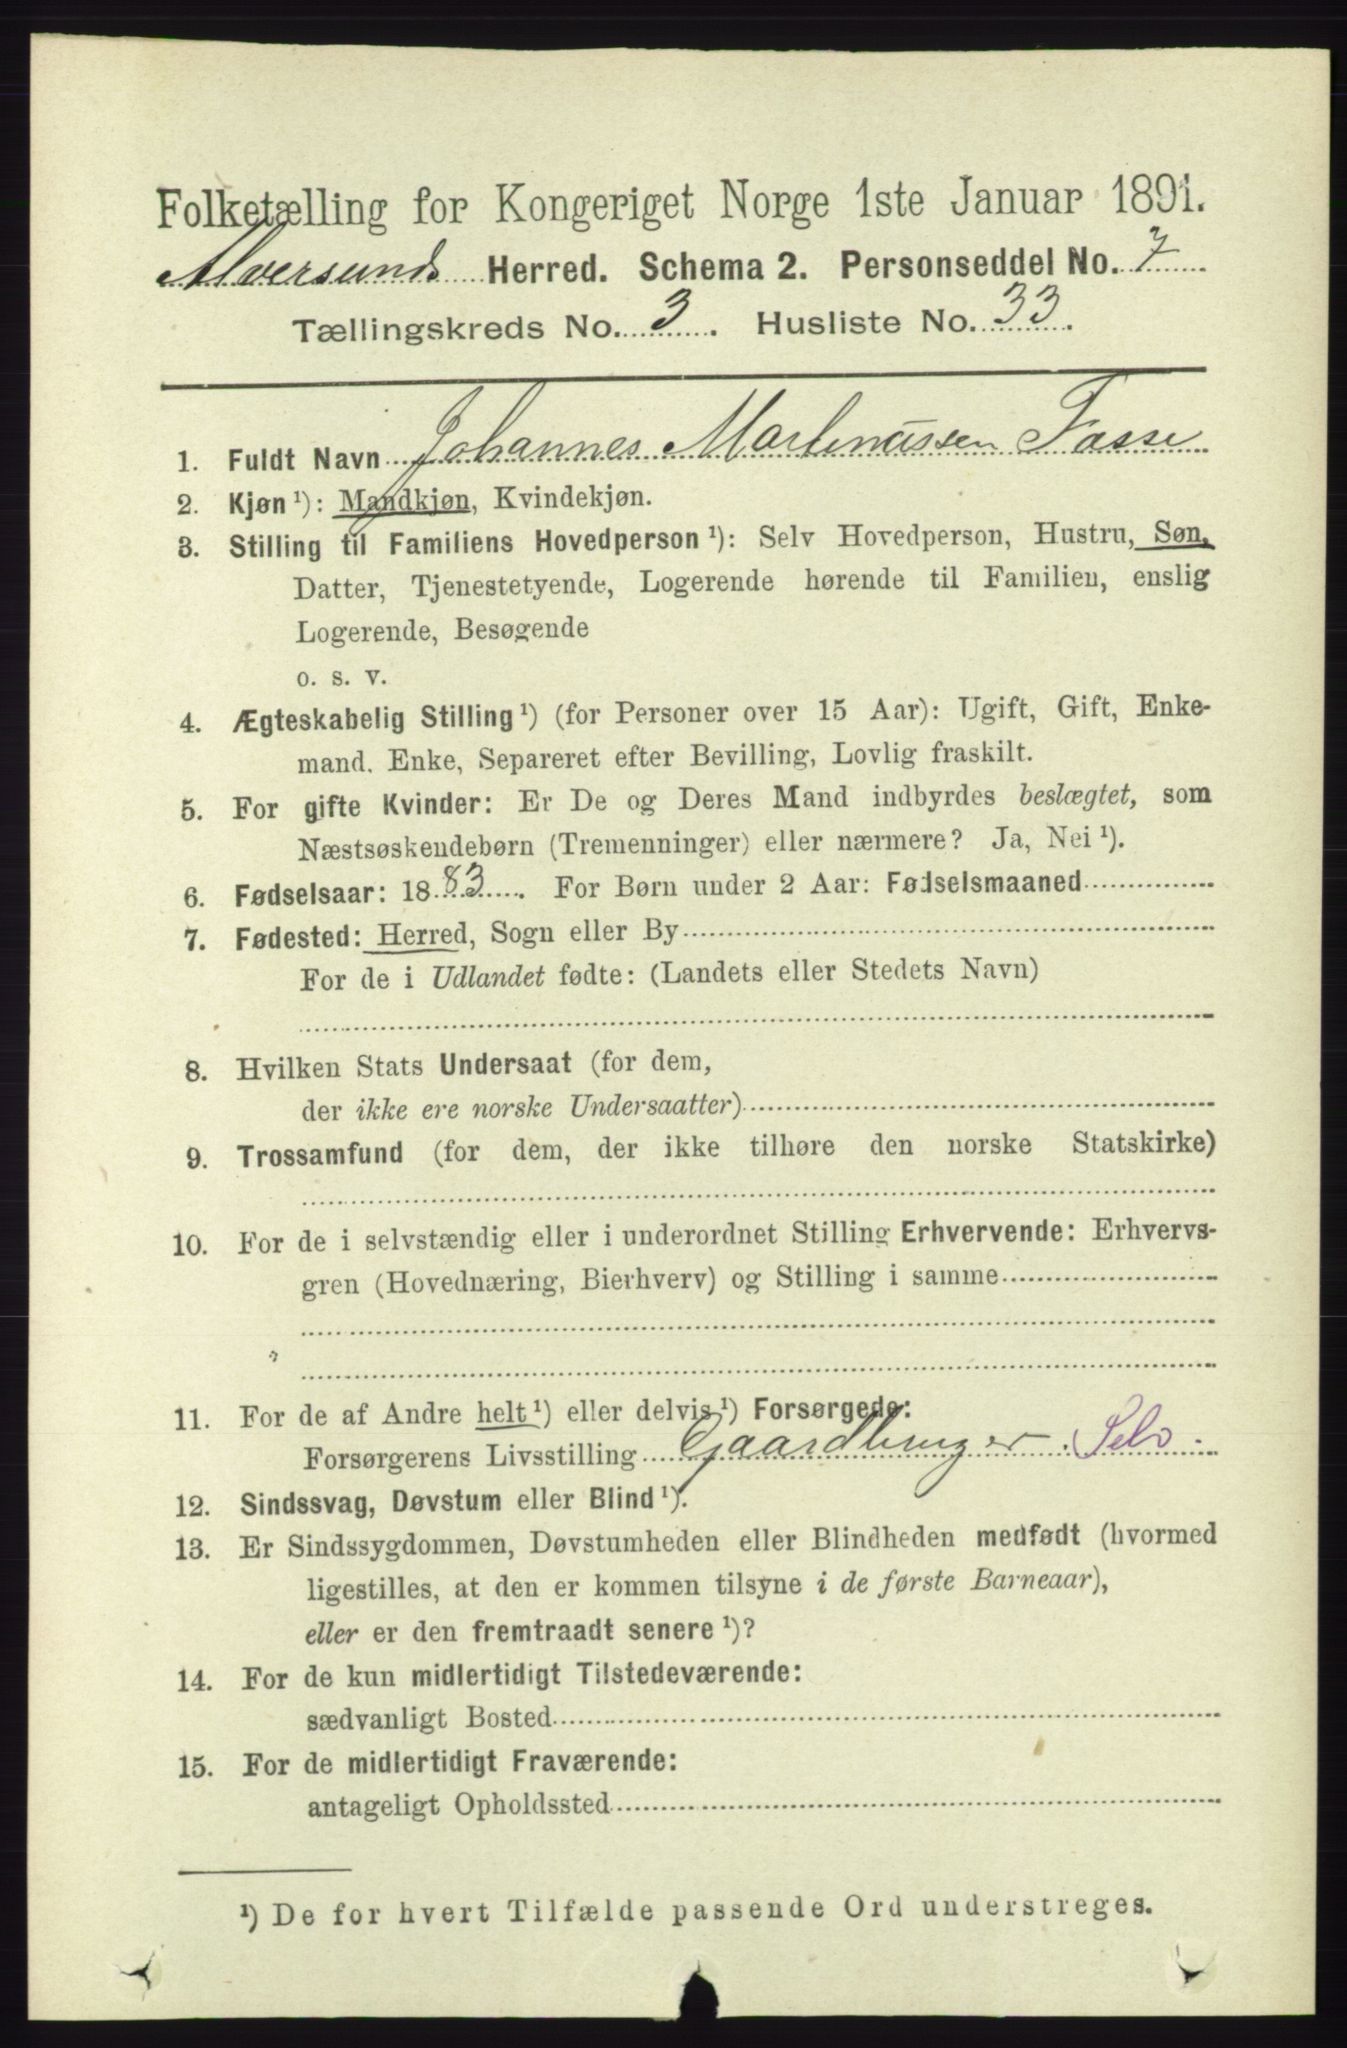 Folketælling for Kongeriget Norge 1ste Januar 1891.
Alversunds Herred. Schema 2. Personseddel No. 7
Tællingskreds No. 3. Husliste No. 33.
1. Fuldt Navn Johannes Martinussen Fosse
2. Kjøn ¹): Mandkjøn, Kvindekjøn.
3. Stilling til Familiens Hovedperson ¹): Selv Hovedperson, Hustru, Søn,
Datter, Tjenestetyende, Logerende hørende til Familien, enslig
Logerende, Besøgende
o. s. v.
4. Ægteskabelig Stilling ¹) (for Personer over 15 Aar): Ugift, Gift, Enke-
mand. Enke, Separeret efter Bevilling, Lovlig fraskilt.
5. For gifte Kvinder: Er De og Deres Mand indbyrdes beslægtet, som
Næstsøskendebørn (Tremenninger) eller nærmere? Ja, Nei ¹).
6. Fødselsaar: 1883. For Børn under 2 Aar: Fødselsmaaned
7. Fødested: Herred, Sogn eller By
For de i Udlandet fødte: (Landets eller Stedets Navn)
8. Hvilken Stats Undersaat (for dem,
der ikke ere norske Undersaatter)
9. Trossamfund (for dem, der ikke tilhøre den norske Statskirke)
10. For de i selvstændig eller i underordnet Stilling Erhvervende: Erhvervs-
gren (Hovednæring, Bierhverv) og Stilling i samme
11. For de af Andre helt ¹) eller delvis ¹) Forsørgede:
Forsørgerens Livsstilling Gaardbruger. Selv.
12. Sindssvag, Døvstum eller Blind ¹).
13. Er Sindssygdommen, Døvstumheden eller Blindheden medfødt (hvormed
ligestilles, at den er kommen tilsyne i de første Barneaar),
eller er den fremtraadt senere ¹)?
14. For de kun midlertidigt Tilstedeværende:
sædvanligt Bosted
15. For de midlertidigt Fraværende:
antageligt Opholdssted
¹) De for hvert Tilfælde passende Ord understreges.